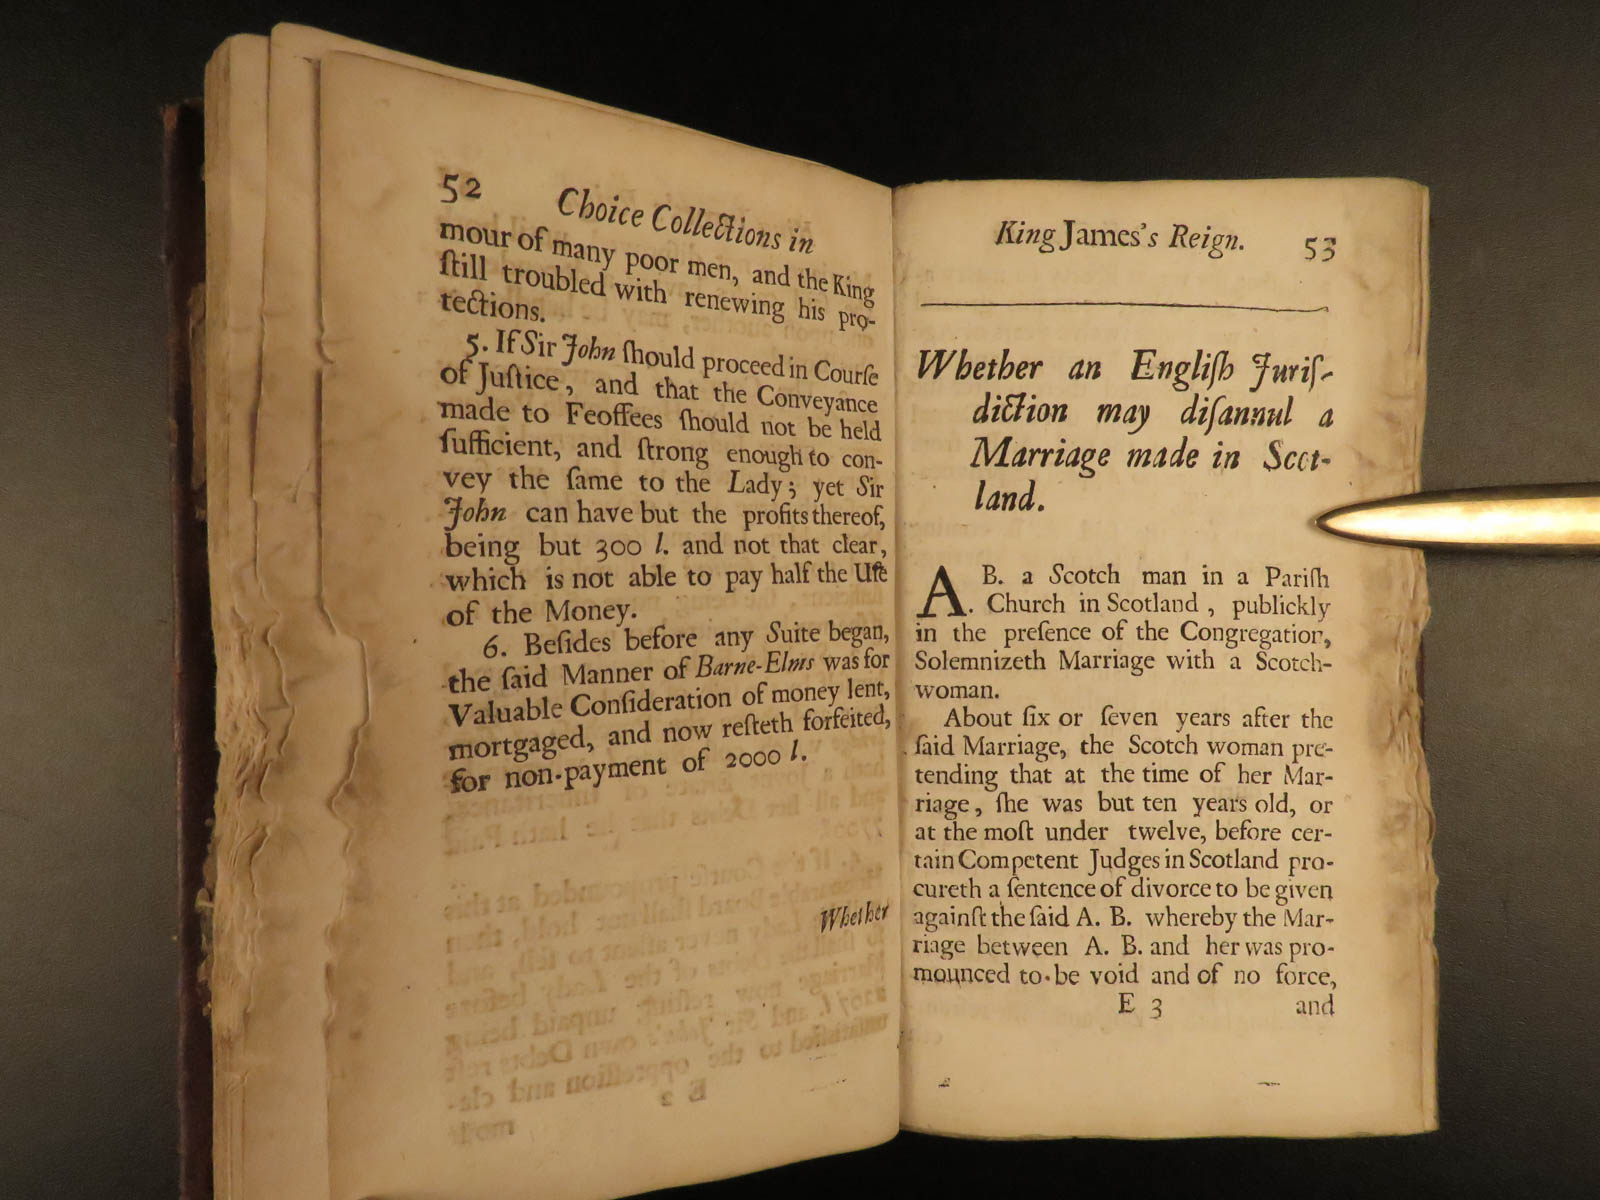 52 Choice Collections in
mour of many poor men, and the King
ſtill troubled with renewing his pro-
tections.
5. If Sir John ſhould proceed in Courſe
of Juſtice, and that the Conveyance
made to Feoffees ſhould not be held
ſufficient, and ſtrong enough to con-
vey the ſame to the Lady; yet Sir
John can have but the profits thereof,
being but 300 l. and not that clear,
which is not able to pay half the Uſe
of the Money.
6. Beſides before any Suite began,
the ſaid Manner of Barne-Elms was for
Valuable Conſideration of money lent,
mortgaged, and now reſteth forfeited,
for non-payment of 2000 l.
Whether
King James's Reign. 53
Whether an Engliſh Juriſ-
diction may diſannul a
Marriage made in Scot-
land.
A. B. a Scotch man in a Pariſh
Church in Scotland, publickly
in the preſence of the Congregation,
Solemnizeth Marriage with a Scotch-
woman.
About ſix or ſeven years after the
ſaid Marriage, the Scotch woman pre-
tending that at the time of her Mar-
riage, ſhe was but ten years old, or
at the moſt under twelve, before cer-
tain Competent Judges in Scotland pro-
cureth a ſentence of divorce to be given
againſt the ſaid A. B. whereby the Mar-
riage between A. B. and her was pro-
mounced to be void and of no force,
E 3 and